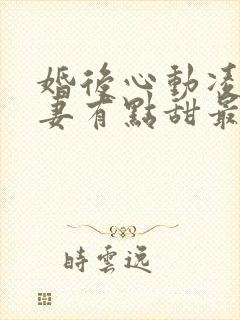 婚後心動凌
妻有點甜最
時雲遠